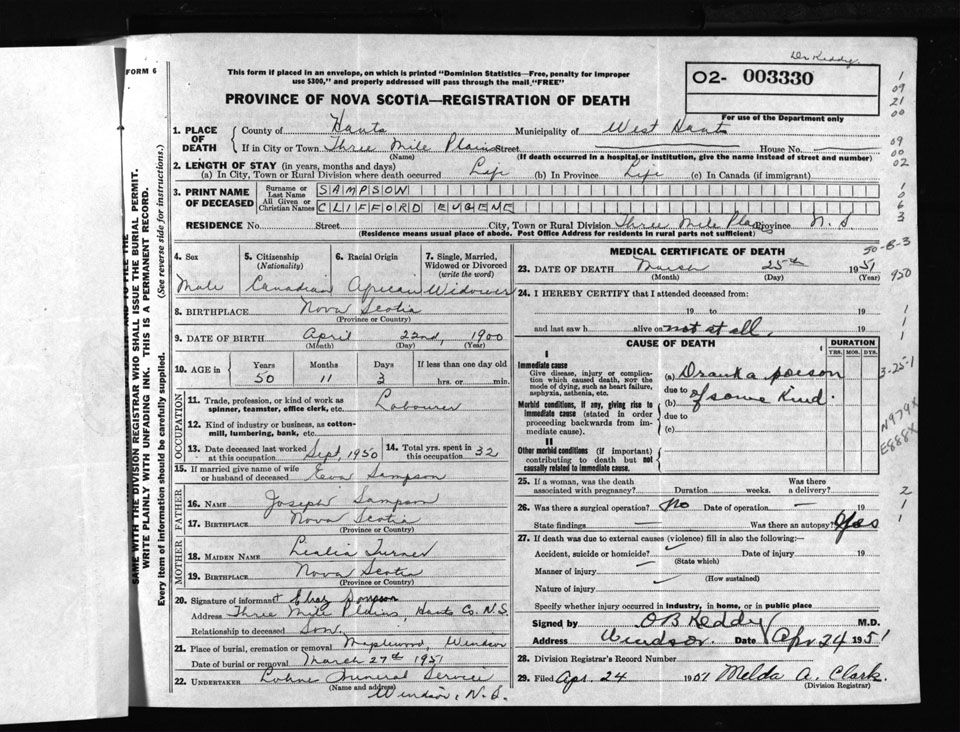 Dr Keddy
FORM 6
This form if placed in an envelope, on which is printed "Dominion Statistics—Free, penalty for improper
use $300," and properly addressed will pass through the mail "FREE"
O2- 003330
For use of the Department only
PROVINCE OF NOVA SCOTIA—REGISTRATION OF DEATH
1. PLACE OF DEATH
County of Hants Municipality of West Hants
If in City or Town Three Mile Plains Street House No.
(Name) (If death occurred in a hospital or institution, give the name instead of street and number)
2. LENGTH OF STAY (in years, months and days)
(a) In City, Town or Rural Division where death occurred Life (b) In Province Life (c) In Canada (if immigrant)
3. PRINT NAME OF DECEASED
Surname or Last Name SAMPSON
All Given or Christian Names CLIFFORD EUGENE
RESIDENCE No. Street City, Town or Rural Division Three Mile Plains Province N. S
(Residence means usual place of abode. Post Office Address for residents in rural parts not sufficient)
4. Sex 5. Citizenship (Nationality) 6. Racial Origin 7. Single, Married, Widowed or Divorced (write the word)
Male Canadian African Widower
8. BIRTHPLACE Nova Scotia
(Province or Country)
9. DATE OF BIRTH April 22nd, 1900
(Month) (Day) (Year)
10. AGE in Years Months Days If less than one day old
50 11 3 hrs. or min.
OCCUPATION
11. Trade, profession, or kind of work as spinner, teamster, office clerk, etc. Labourer
12. Kind of industry or business, as cotton-mill, lumbering, bank, etc.
13. Date deceased last worked at this occupation Sept, 1950 14. Total yrs. spent in this occupation 32
15. If married give name of wife or husband of deceased Eva Sampson
FATHER
16. NAME Joseph Sampson
17. BIRTHPLACE Nova Scotia
(Province or Country)
MOTHER
18. MAIDEN NAME Lealia Turner
19. BIRTHPLACE Nova Scotia
(Province or Country)
20. Signature of informant Sampson
Address Three Mile Plains, Hants Co. N.S.
Relationship to deceased Son,
21. Place of burial, cremation or removal Maplewood, Windsor
Date of burial or removal March 27th 1951
22. UNDERTAKER Funeral Service
(Name and address) Windsor, N.S.
MEDICAL CERTIFICATE OF DEATH
23. DATE OF DEATH March 25th 1951
(Month) (Day) (Year)
24. I HEREBY CERTIFY that I attended deceased from:
19 to 19
and last saw h alive on not at all. 19
CAUSE OF DEATH
DURATION
YRS. MOS. DYS.
I
Immediate cause
Give disease, injury or complication which caused death, NOT the mode of dying, such as heart failure, asphyxia, asthenia, etc.
(a) Drank a poison
due to of some kind.
(b)
Morbid conditions, if any, giving rise to immediate cause (stated in order proceeding backwards from immediate cause).
due to
(c)
II
Other morbid conditions (if important) contributing to death but not causally related to immediate cause.
25. If a woman, was the death associated with pregnancy? Duration weeks. Was there a delivery?
26. Was there a surgical operation? No Date of operation — 19
State findings — Was there an autopsy? Yes
27. If death was due to external causes (violence) fill in also the following:—
Accident, suicide or homicide? Date of injury 19
(State which)
Manner of injury
(How sustained)
Nature of injury
Specify whether injury occurred in industry, in home, or in public place
Signed by OB Keddy M.D.
Address Windsor. Date Apr 24 1951
28. Division Registrar's Record Number
29. Filed Apr. 24 1951 Melda A. Clark.
(Division Registrar)
1
09
21
00
09
00
02
1
0
6
3
50-B-3
950
1
1
1
3-25-1
N979X
E888X
2
1
1
WRITE PLAINLY WITH UNFADING INK. THIS IS A PERMANENT RECORD.
SAME WITH THE DIVISION REGISTRAR WHO SHALL ISSUE THE BURIAL PERMIT.
Every item of information should be carefully supplied. (See reverse side for instructions.)